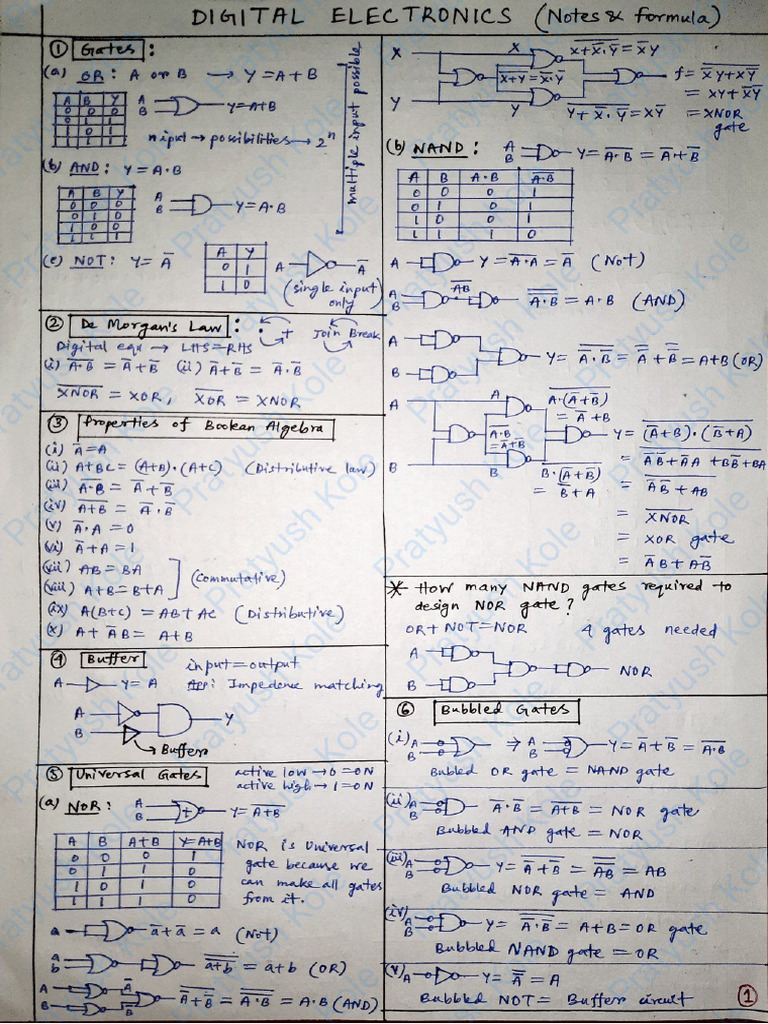 DIGITAL ELECTRONICS (Notes & formula)
① Gates :
(a) OR: A or B → Y = A+B
A B Y
0 0 0
0 1 1
1 0 1
1 1 1
A
B
Y=A+B
n input → possibilities → 2ⁿ
multiple input possible
(b) AND: Y=A·B
A B Y
0 0 0
0 1 0
1 0 0
1 1 1
A
B
Y=A·B
(c) NOT: Y= A̅
A Y
0 1
1 0
A
A̅
(single input only)
② De Morgan's Law :
· +
Join Break
Digital equ → LHS=RHS
(i) \overline{A·B} = A̅+B̅ (ii) \overline{A+B} = A̅·B̅
\overline{XNOR} = XOR, \overline{XOR} = XNOR
③ Properties of Boolean Algebra
(ii) A+BC = (A+B)·(A+C) (Distributive law)
(iii) \overline{A·B} = A̅+B̅
(iv) \overline{A+B} = A̅·B̅
(v) A̅·A = 0
(vi) A̅+A = 1
(vii) AB = BA
(viii) A+B = B+A
(Commutative)
(ix) A(B+C) = AB+AC (Distributive)
(x) A+A̅B = A+B
④ Buffer
input = output
A Y=A
App: Impedence matching
A
B
Y
Buffer
⑤ Universal Gates
active low → 0 = ON
active high → 1 = ON
(a) NOR:
A
B
+
A B A+B
0 0 0 1
0 1 1 0
1 0 1 0
1 1 1 0
NOR is Universal
gate because we
can make all gates
from it.
(Not)
a
b
= a+b (OR)
A
B
= A·B (AND)
X
Y
= XNOR
gate
(b) NAND:
A
B
Y= \overline{A·B} = A̅+B̅
A B A·B \overline{A·B}
0 0 0 1
0 1 0 1
1 0 0 1
1 1 1 0
A Y = \overline{A·A} = A̅ (Not)
A
B
\overline{AB}
= A·B (AND)
A
B
= A+B (OR)
A
B
Y = \overline{(A̅+B)·(B̅+A)}
= \overline{XNOR}
= XOR gate
= A̅B+AB̅
* How many NAND gates required to
design NOR gate?
OR+NOT=NOR 4 gates needed
A
B
NOR
⑥ Bubbled Gates
(i) A
B
⇒ A
B
Y= A̅+B̅ = \overline{A·B}
Bubbled OR gate = NAND gate
(ii) A
B
A̅·B̅ = \overline{A+B} = NOR gate
Bubbled AND gate = NOR
(iii) A
B
= AB
Bubbled NOR gate = AND
(iv) A
B
= A+B = OR gate
Bubbled NAND gate = OR
(v) A
= A
Bubbled NOT = Buffer circuit
①
Pratyush Kole